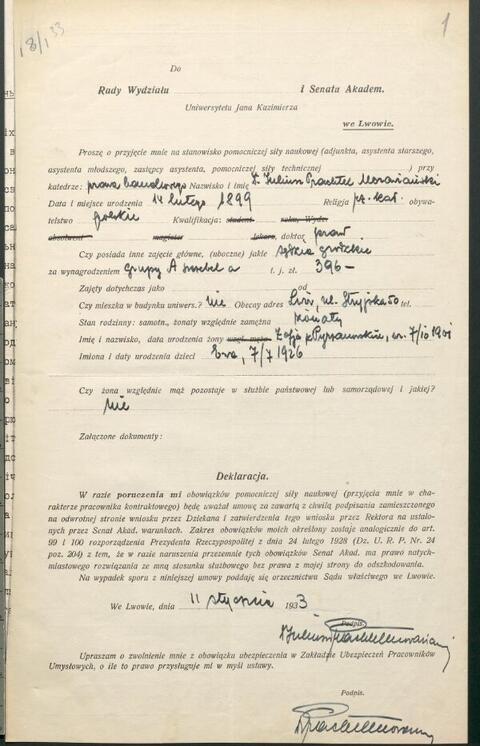 18/I 33
1
Do
Rady Wydziału i Senata Akadem.
Uniwersytetu Jana Kazimierza
we Lwowie.
Proszę o przyjęcie mnie na stanowisko pomocniczej siły naukowej (adjunkta, asystenta starszego,
asystenta młodszego, zastępcy asystenta, pomocniczej siły technicznej ) przy
katedrze: prawa handlowego Nazwisko i imię Juliusz
Data i miejsce urodzenia 14 lutego 1899 Religja rz. kat. obywa-
telstwo polskie Kwalifikacja: student
absolwent magister lekarz, doktor praw
Czy posiada inne zajęcie główne, (uboczne) jakie sędzia grodzki
za wynagrodzeniem grupy A t. j. zł. 396-
Zajęty dotychczas jako od
Czy mieszka w budynku uniwers.? nie Obecny adres Lwów, ul. Stryjska 50 tel.
Stan rodzinny: samotn., żonaty względnie zamężna żonaty
Imię i nazwisko, data urodzenia żony Zofja z ur. 7/10 1901
Imiona i daty urodzenia dzieci Ewa, 7/7 1926
Czy żona względnie mąż pozostaje w służbie państwowej lub samorządowej i jakiej?
nie
Załączone dokumenty:
Deklaracja.
W razie poruczenia mi obowiązków pomocniczej siły naukowej (przyjęcia mnie w cha-
rakterze pracownika kontraktowego) będę uważał umowę za zawartą z chwilą podpisania zamieszczonego
na odwrotnej stronie wniosku przez Dziekana i zatwierdzenia tego wniosku przez Rektora na ustalo-
nych przez Senat Akad. warunkach. Zakres obowiązków moich określony zostaje analogicznie do art.
99 i 100 rozporządzenia Prezydenta Rzeczypospolitej z dnia 24 lutego 1928 (Dz. U. R. P. Nr. 24
poz. 204) z tem, że w razie naruszenia przezemnie tych obowiązków Senat Akad. ma prawo natych-
miastowego rozwiązania ze mną stosunku służbowego bez prawa z mojej strony do odszkodowania.
Na wypadek sporu z niniejszej umowy poddaję się orzecznictwu Sądu właściwego we Lwowie.
We Lwowie, dnia 11 stycznia 1933
Podpis.
Upraszam o zwolnienie mnie z obowiązku ubezpieczenia w Zakładzie Ubezpieczeń Pracowników
Umysłowych, o ile to prawo przysługuje mi w myśl ustawy.
Podpis.